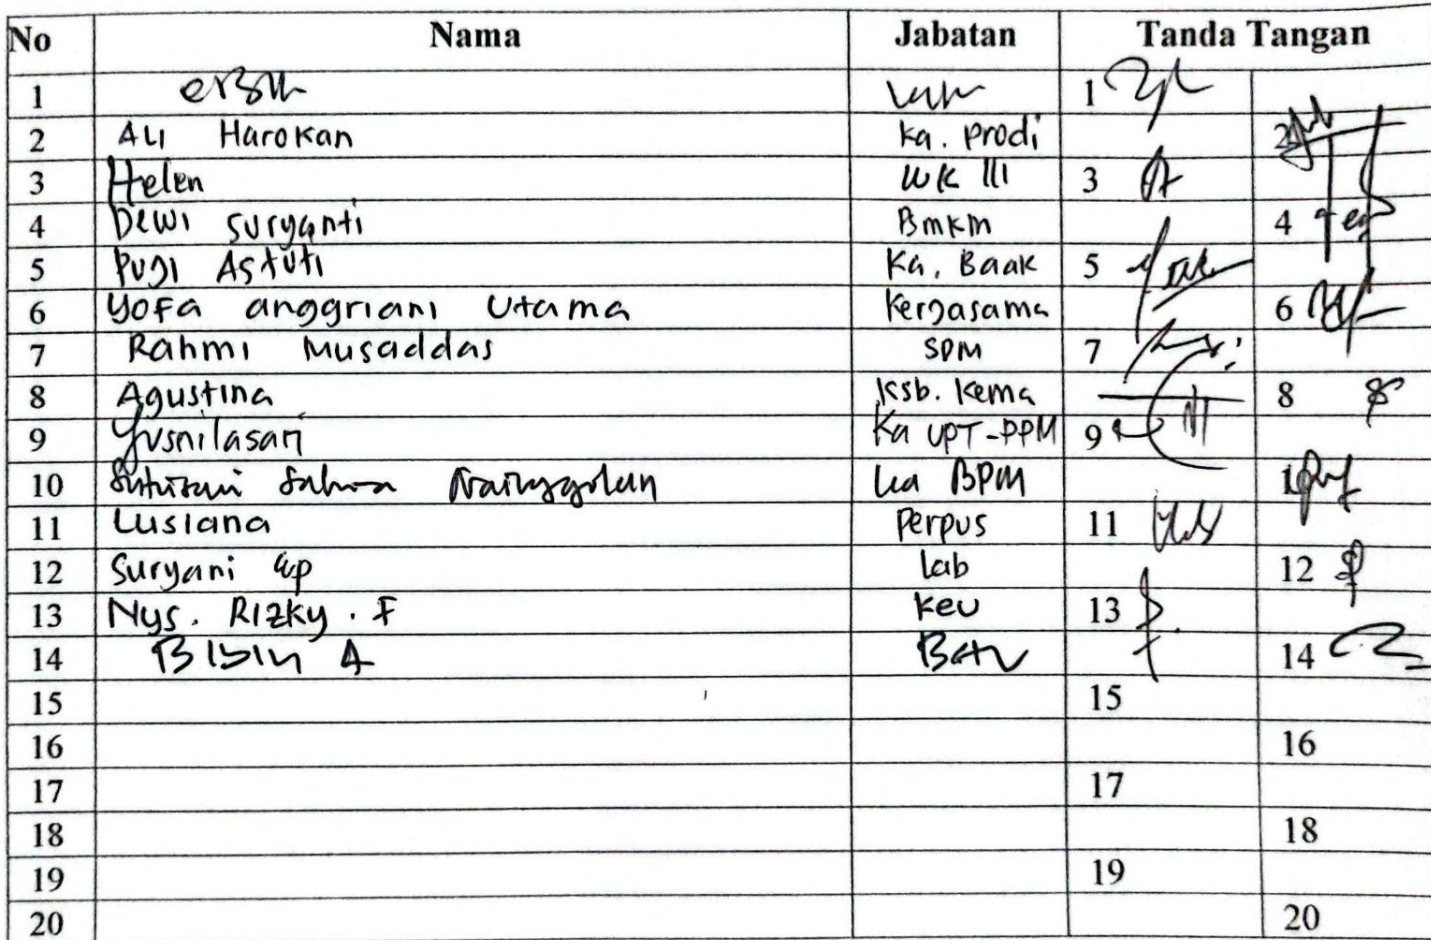 No Nama Jabatan Tanda Tangan
1 1
2 Ali Harokan Ka. Prodi 2
3 Helen WK III 3
4 Dewi Suryanti Bmkm 4
5 Puji Astuti Ka. Baak 5
6 Yofa anggriani Utama Kerjasama 6
7 Rahmi Musaddas SDM 7
8 Agustina Ksb. Kema 8
9 Yusnilasari Ka UPT-PPM 9
10 Nainggolan Ka BPM 10
11 Lusiana Perpus 11
12 Suryani Lab 12
13 Nys. Rizky. F Keu 13
14 A 14
15 15
16 16
17 17
18 18
19 19
20 20